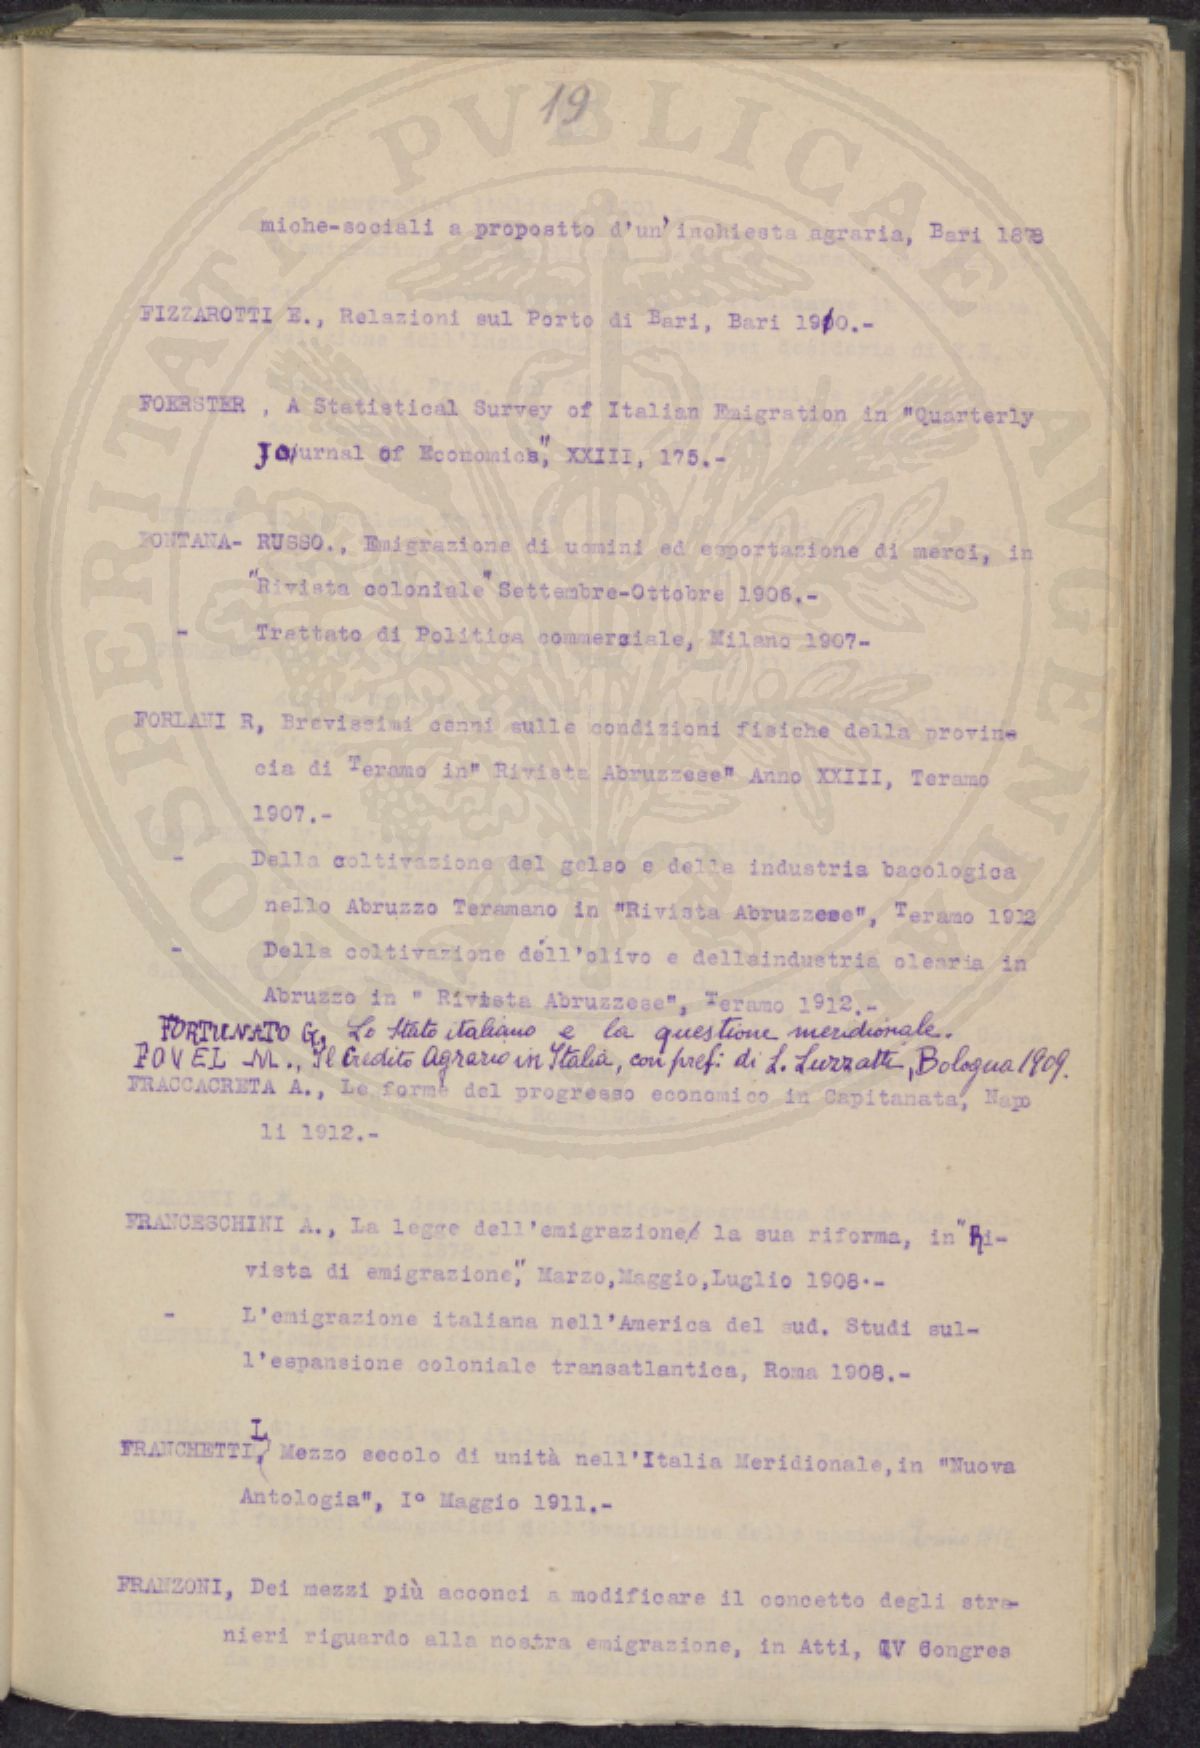 19
miche-sociali a proposito d'un'inchiesta agraria, Bari 1878
FIZZAROTTI E., Relazioni sul Porto di Bari, Bari 1900.-
FOERSTER , A Statistical Survey of Italian Emigration in "Quarterly
Journal of Economics", XXIII, 175.-
FONTANA- RUSSO., Emigrazione di uomini ed esportazione di merci, in
"Rivista coloniale" Settembre-Ottobre 1906.-
- Trattato di Politica commerciale, Milano 1907-
FORLANI R, Brevissimi cenni sulle condizioni fisiche della provin-
cia di Teramo in" Rivista Abruzzese" Anno XXIII, Teramo
1907.-
- Della coltivazione del gelso e della industria bacologica
nello Abruzzo Teramano in "Rivista Abruzzese", Teramo 1912
- Della coltivazione dell'olivo e dellaindustria olearia in
Abruzzo in " Rivista Abruzzese", Teramo 1912.-
FORTUNATO G, Lo Stato italiano e la questione meridionale.
FOVEL M., Il Credito Agrario in Italia, con pref. di L. Luzzatti, Bologna 1909.
FRACCACRETA A., Le forme del progresso economico in Capitanata, Napo
li 1912.-
FRANCESCHINI A., La legge dell'emigrazione e la sua riforma, in "Ri-
vista di emigrazione", Marzo,Maggio,Luglio 1908.-
- L'emigrazione italiana nell'America del sud. Studi sul-
l'espansione coloniale transatlantica, Roma 1908.-
FRANCHETTI L, Mezzo secolo di unità nell'Italia Meridionale,in "Nuova
Antologia", I° Maggio 1911.-
FRANZONI, Dei mezzi più acconci a modificare il concetto degli stra-
nieri riguardo alla nostra emigrazione, in Atti, IV Congres
PUBLICAE AUGENDAE
PROSPERITATI